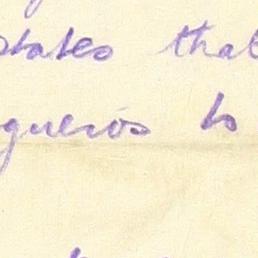 states that
gueros to